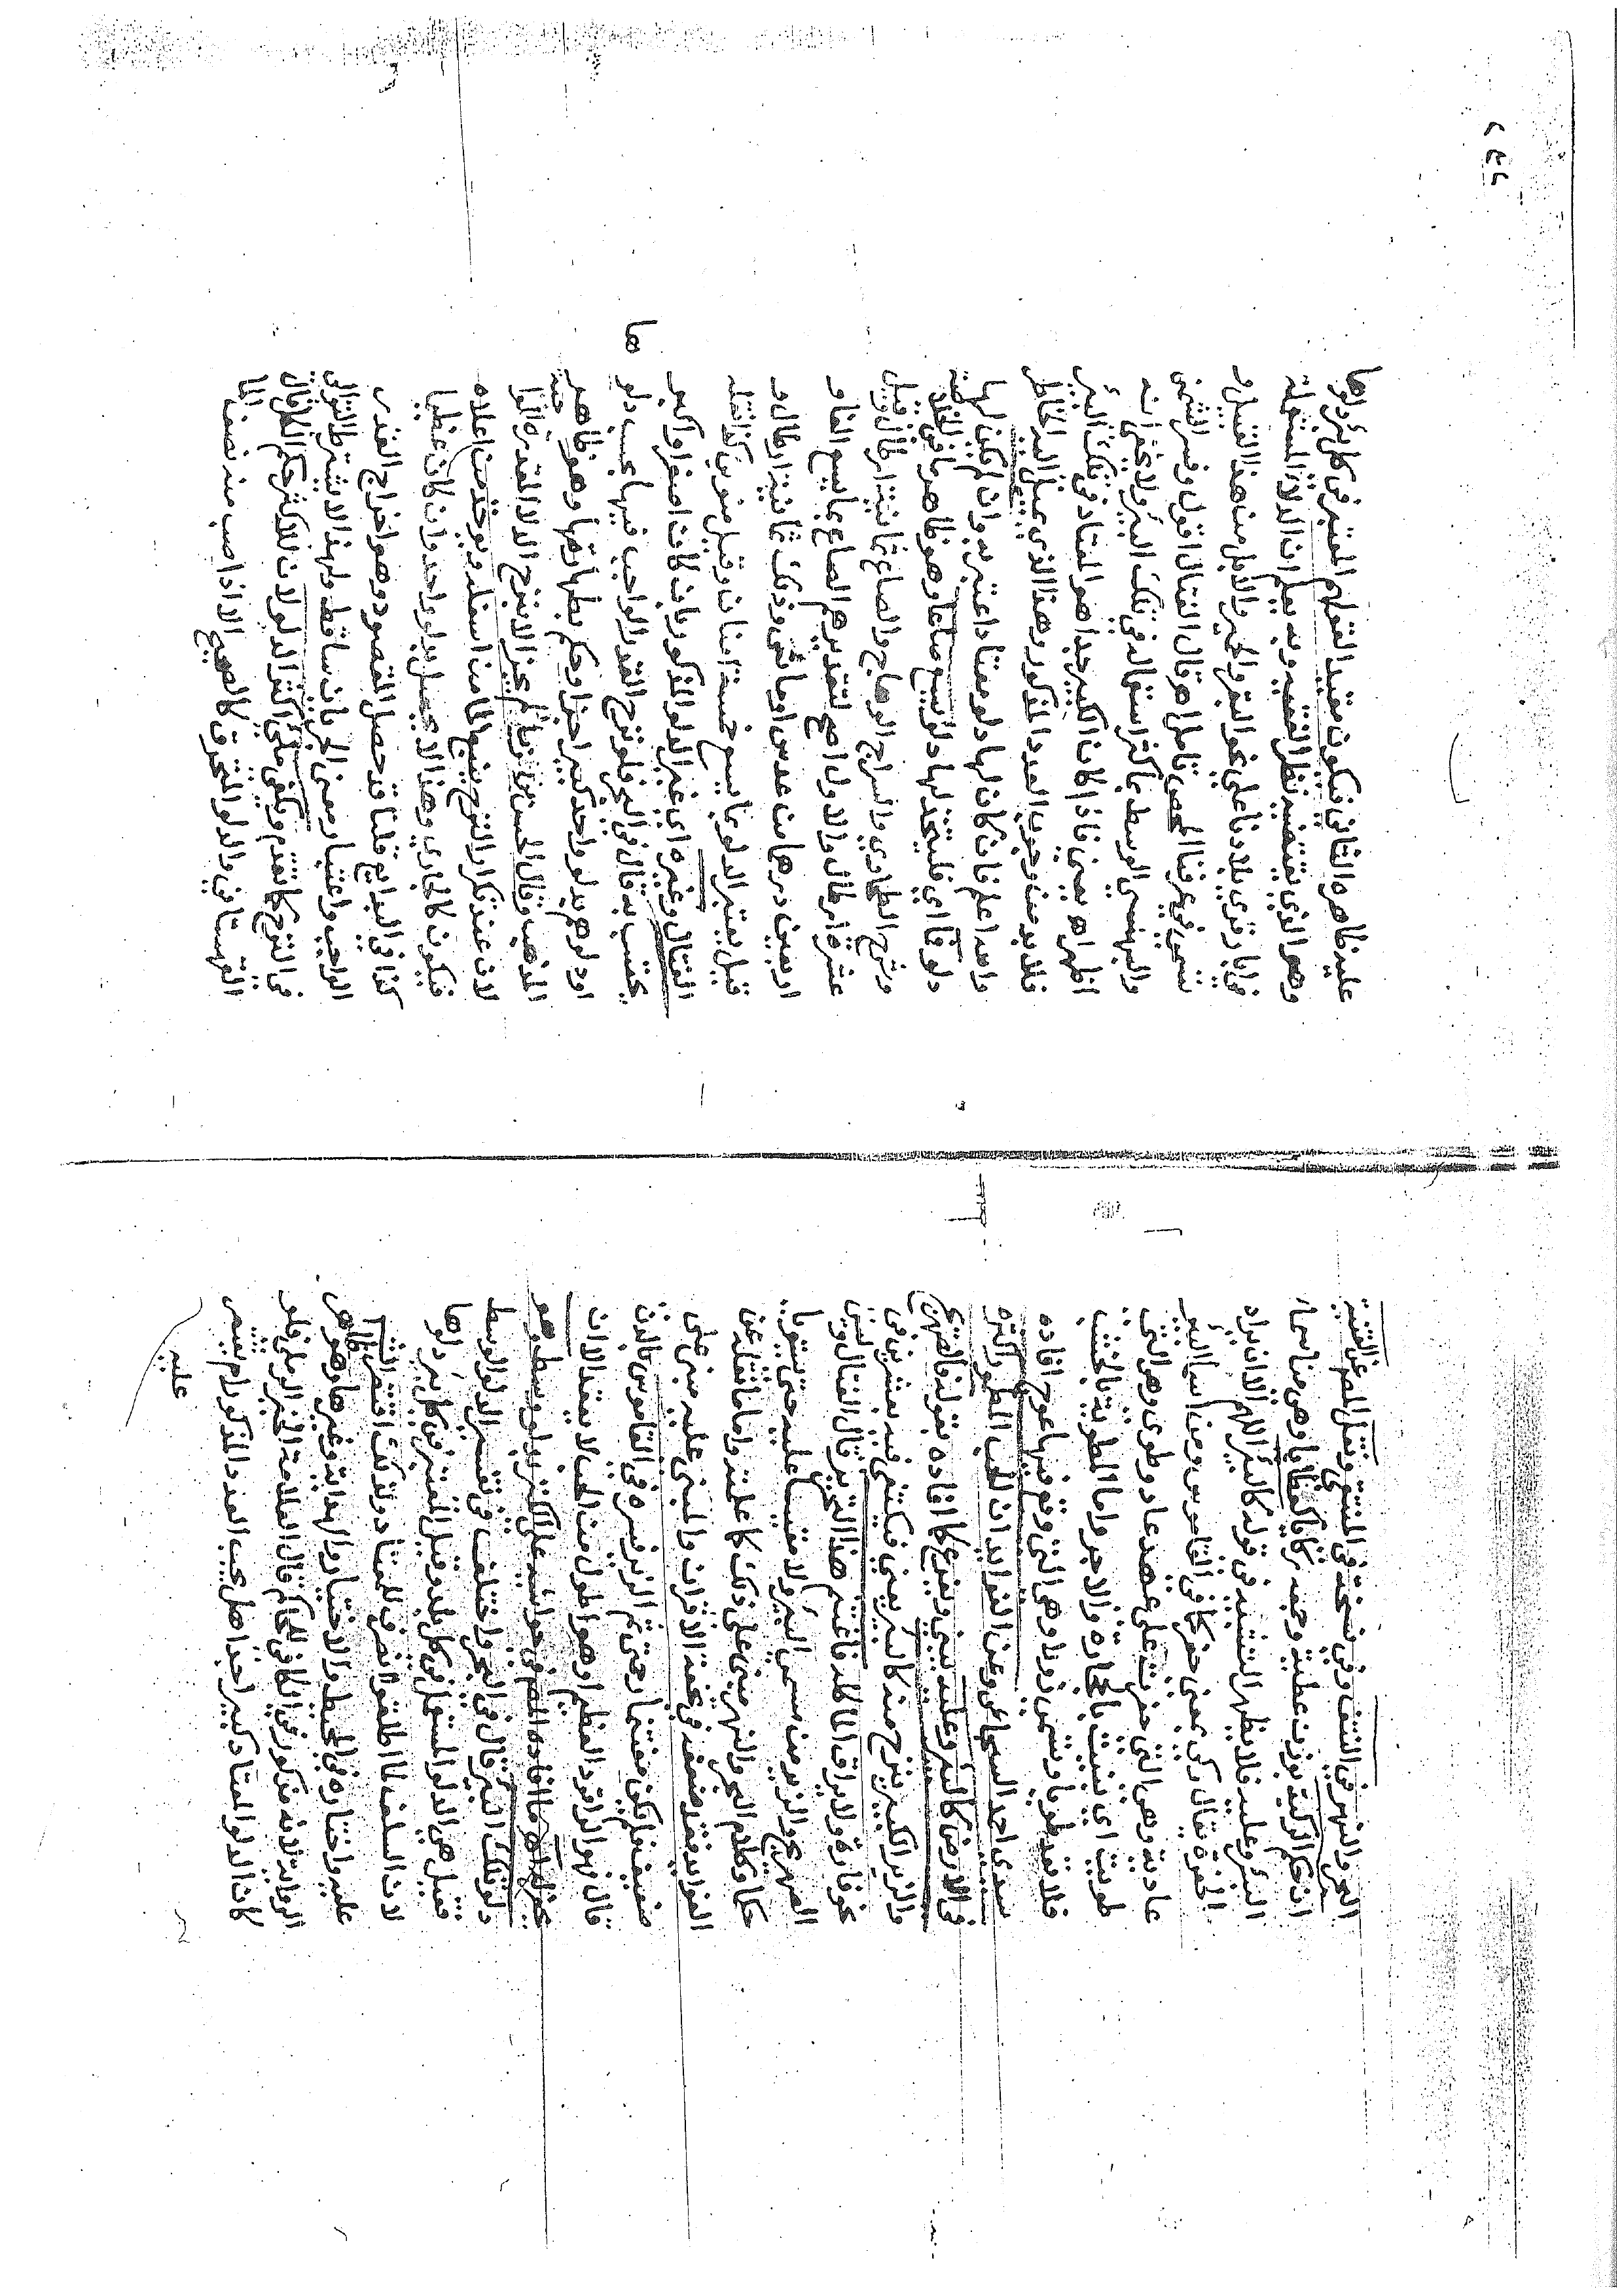 البحر والنهر في النتف وفي نسخة في المنتقى ونقل المص عن القنية
ان حكم الركية بوزن عطية وجمعه ركايا كعطايا وهي من اسماء
البئر وعليه فلا يظهر التشبيه في قوله كالبئر اللهم الا ان يراد
الحفرة يقال ركى بمعنى حفر كما في القاموس ومن اسماء البئر
عادية وهي التي حفرت على عهد عاد وطوى وهي التي
طويت اي بنيت بالحجارة والاجر واما المطوية بالخشب
فلا تعد طويا وتسمى زورا وهي التي وقع فيها عوج افاده
سيدي احمد السجاعي وعن الفوايد ان الحب المطمور اكثره
في الارض كالبئر وعليه يبني ويفرع كما افاده بقوله فالصهريج
والزير الكبير ينزح منه كالبئر يعني فيكتفي فيه بعشرين في
نحو فارة ولا يراق الماء كله فاغتنم هذا التحرير قال الفتال وبين
الصهريج والزير من مسمى البئر ولا مقيسا عليه حتى يثبتوا
حكما وكلام البحر والنهر مبني على ذلك كما علمت واما ما نقله عن
الفوايد فقد ضعفه في تحفة الاقران والمبني عليه مبني على
ضعيف فليكن ثم الزير فسره في القاموس بالدن
قال فهو الراقود العظيم او هو اطول من الحب لا يقعد الا ان
يحفر له اهـ ما افاده المص في حواشيه على الكنز بدلو وسط وهو
دلو تلك البئر قال في البحر واختلف في تفسير الدلو الوسط
فقيل هي الدلو المستعمل في كل بلد وقيل المعتبر في كل بئر دلوها
لان السلف لما اطلقوا انصرف للمعتاد ولذلك اقتصر
عليه واختاره في المحيط والاختيار والهداية وغيرها وهو ظاهر
الرواية لانه مذكور في الكافي للحاكم قال العلامة الخير الرملي فلو
كان الدلو المعتاد كبيرا جدا هل يجب العدد المذكور ام يقتصر
عليه
عليه ظاهره الثاني فيكون مقيد القولهم المعتبر في كل بئر دلوها
وهو الذي يقتضيه نظر الفقيه وبه يعلم ان الدلاء المستعملة
في ابار قرى بلادنا على نحو البقر والحمير والابل من هذا القبيل و
تسمى في عرفنا بالحصن تامل اهـ قال الفتال اقول وفسر الشمني
والبهنسي الوسط بما كثر استعماله في تلك البئر ولا يخفى انه
اظهر اهـ يعني فاذا كان الكبير جدا هو المعتاد في تلك البئر
فلا بد من وجوب العدد المذكور وهذا الذي
اعلم فان كان لها دلو معتاد اعتبر به وان لم يكن لها
دلو فاي فليتخذ لها دلو يسع صاعا وهو ظاهر ما في الخلاصة
وشرح الطحاوي والسراج الوهاج والصاع ثمانية ارطال وقيل
عشرة ارطال والاول اصح لتقديرهم الصاع بما يسع الفا و
اربعين درهما من عدس او ماش وذلك ثمانية ارطال و
قيل يعتبر الدلو بما يسع خمسة امنان وقيل منوين كذا نقله
الفتال وغيره اي غير الدلو المذكور بان كان اصغر او اكبر
يحتسب به قال في البحر فلو نزح القدر الواجب فيها بحسب دلوها
او دلوهم بدلو واحد كبير اجزا وحكم بطهارتها وهو ظاهر
المذهب وقال الحسن بن زياد لا يجوز الا بنزح الدلاء المقدرة
لان عند تكرار النزح ينبع الماء من اسفله ويؤخذ من اعلاه
فيكون كالجاري وهذا لا يحصل بدلو واحد وان كان عظيما
كذا في البدايع قلنا قد حصل المقصود وهو اخراج القدر
الواجب واعتبار معنى الجريان ساقط ولهذا لا يشترط التوالي
في النزح كما تقدم ويكفي ملئ اكثر الدلو لان للاكثر حكم الكل قال
القهستاني والدلو المنخرق كالصحيح الا اذا صب منه نصف الماء